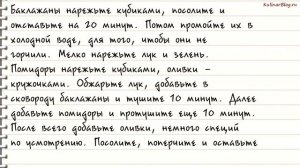 KulinarBlog.ru
Баклажаны нарежьте кубиками, посолите и
отставьте на 20 минут. Потом промойте их в
холодной воде, для того, чтобы они не
горчили. Мелко нарежьте лук и зелень.
Помидоры нарежьте кубиками, оливки –
кружочками. Обжарьте лук, добавьте в
сковороду баклажаны и тушите 10 минут. Далее
добавьте помидоры и протушите еще 10 минут.
После всего добавьте оливки, немного специй
по усмотрению. Посолите, поперчите и оставьте